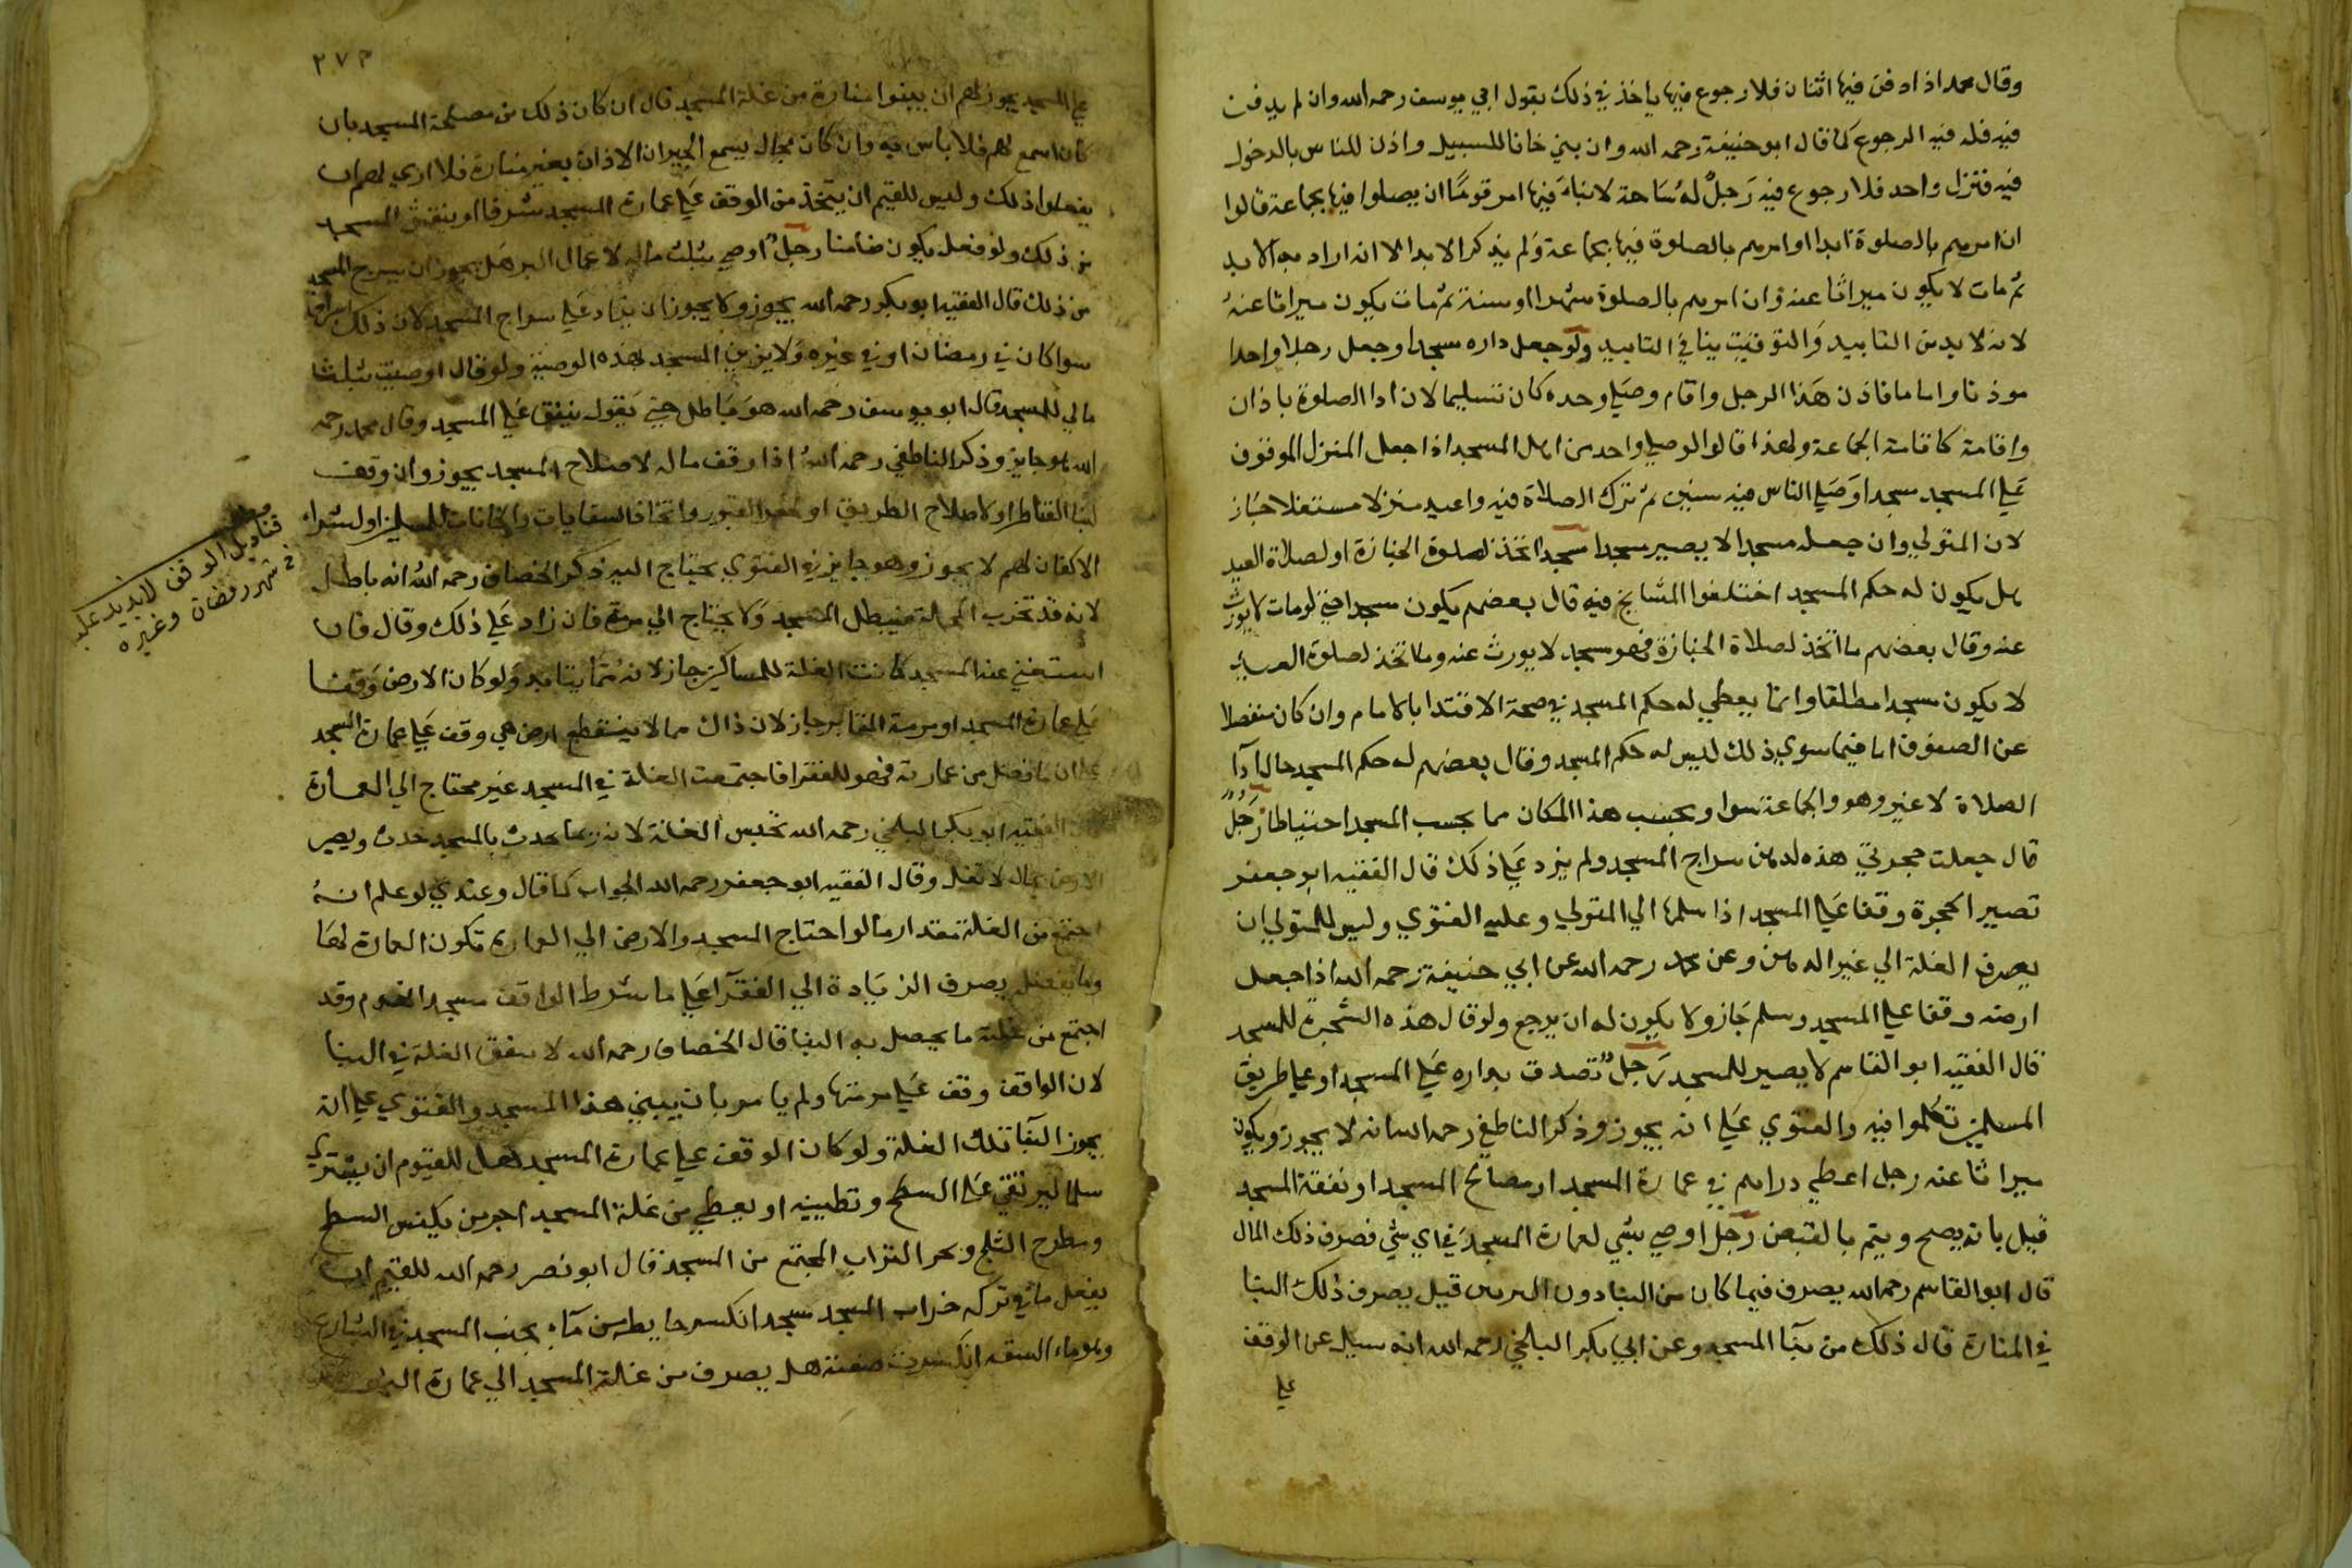 وقال محمد اذا دفن فيها اثنان فلا رجوع فيها ياخذ في ذلك بقول ابي يوسف رحمه الله وان لم يدفن
فيه فله فيه الرجوع كما قال ابو حنيفة رحمه الله وان بني خانا للسبيل واذن للناس بالدخول
فيه فنزل واحد فلا رجوع فيه رجل له ساحة لا بناء فيها امر قوما ان يصلوا فيها بجماعة قالوا
ان امرهم بالصلوة ابدا او امرهم بالصلوة فيها بجماعة ولم يذكر الابد الا انه اراد به الابد
ثم مات لا يكون ميراثا عنه وان امرهم بالصلوة شهرا او سنة ثم مات يكون ميراثا عنه
لانه لا بد من التابيد والتوقيت ينافي التابيد ولو جعل داره مسجدا وجعل رجلا واحدا
موذنا واماما فاذن هذا الرجل واقام وصلي وحده كان تسليما لان ادا الصلوة باذان
واقامة كاقامة الجماعة ولهذا قالوا لو صلي واحد من اهل المسجد اذا جعل المنزل الموقوف
علي المسجد مسجدا وصلي الناس فيه سنين ثم ترك الصلاة فيه واعيد منزلا مستغلا جاز
لان المتولي وان جعله مسجدا لا يصير مسجدا مسجد اتخذ لصلوة الجنازة او لصلاة العيد
هل يكون له حكم المسجد اختلفوا المشايخ فيه قال بعضهم يكون مسجدا حتي لو مات لا يورث
عنه وقال بعضهم ما اتخذ لصلاة الجنازة فهو مسجد لا يورث عنه وما اتخذ لصلوة العيد
لا يكون مسجدا مطلقا وانما يعطي له حكم المسجد في صحة الاقتدا بالامام وان كان منفصلا
عن الصفوف اما فيما سوي ذلك ليس له حكم المسجد وقال بعضهم له حكم المسجد حال اداء
الصلاة لا غير وهو والجماعة سوا ويجنب هذا المكان مما يجنب المسجد احتياطا رجل
قال جعلت حجرتي هذه لدهن سراج المسجد ولم يزد علي ذلك قال الفقيه ابو جعفر
تصير الحجرة وقفا علي المسجد اذا سلمها الي المتولي وعليه الفتوي وليس للمتولي ان
يصرف الغلة الي غير الدهن وعن محمد رحمه الله عن ابي حنيفة رحمه الله اذا جعل
ارضه وقفا علي المسجد وسلم جاز ولا يكون له ان يرجع ولو قال هذه الشجرة للمسجد
قال الفقيه ابو القاسم لا يصير للمسجد رجل تصدق بداره علي المسجد او علي طريق
المسلمين تكلموا فيه والفتوي علي انه يجوز وذكر الناطفي رحمه الله انه لا يجوز ويكون
ميراثا عنه رجل اعطي دراهم في عمارة المسجد او مصالح المسجد او نفقة المسجد
قيل بانه يصح ويتم بالقبض رجل اوصي بشي لعمارة المسجد ففي اي شي فصرف ذلك المال
قال ابو القاسم رحمه الله يصرف فيما كان من البناء دون قيل يصرف ذلك البنا
في المنارة قال ذلك من بنآ المسجد وعن ابي بكر البلخي رحمه الله انه سيل عن الوقف
علي
٢٧٣
علي المسجد يجوز لهم ان يبنوا منارة من غلة المسجد قال ان كان ذلك من مصلحة المسجد بان
كان اسمع لهم فلا باس فيه وان كان بحال يسمع الجيران الاذان بغير منارة فلا اري لهم ان
يفعلوا ذلك وليس للقيم ان يتخذ من الوقف علي عمارة المسجد شرفا او ينقش المسجد
من ذلك ولو فعل يكون ضامنا رجل اوصي بثلث ماله لاعمال البر هل يجوز ان يسرج المسجد
من ذلك قال الفقيه ابو بكر رحمه الله يجوز ولا يجوز ان يزاد علي سراج المسجد لان ذلك اسراف
سوا كان في رمضان او في غيره ولا يزين المسجد بهذه الوصية ولو قال اوصيت بثلث
مالي للمسجد قال ابو يوسف رحمه الله هو باطل حتي يقول ينفق علي المسجد وقال محمد رحمه
الله هو جايز وذكر الناطفي رحمه الله اذا وقف ماله لاصلاح المسجد يجوز وان وقف
لبنا القناطر او لاصلاح الطريق او لحفر القبور واتخاذ السقايات والخانات للمسلمين او لشراء
الاكفان لهم لا يجوز وهو جايز في الفتوي يحتاج اليه ذكر الخصاف رحمه الله انه باطل
لانه قد تخرب المحلة فيبطل المسجد ولا يحتاج الي مرمة فان زاد علي ذلك وقال فان
استغني عنه المسجد كانت الغلة للمساكين جاز لانه مما يتابد ولو كان الارض وقفا
علي عمارة المسجد او مرمة المقابر جاز لان ذاك مما لا ينقطع ارض هي وقف علي عمارة المسجد
علي ان ما فضل من عمارته فهو للفقرا فاجتمعت الغلة في المسجد غير محتاج الي العمارة
الفقيه ابو بكر البلخي رحمه الله تحبس الغلة لانه ربما يحدث بالمسجد حدث ويصير
الارض بحال لا تغل وقال الفقيه ابو جعفر رحمه الله الجواب كما قال وعندي لو علم انه
اجتمع من الغلة مقدار ما لو احتاج المسجد والارض الي العمارة تكون العمارة لها
وما يفضل يصرف الزيادة الي الفقرآ علي ما شرط الواقف مسجد انهدم وقد
اجتمع من غلته ما يحصل به البنا قال الخصاف رحمه الله لا ينفق الغلة في البنا
لان الواقف وقف علي مرمتها ولم يامر بان يبني هذا المسجد والفتوي علي انه
يجوز البنا تلك الغلة ولو كان الوقف علي عمارة المسجد هل للقيوم ان يشتري
سلما ليرتقي علي السطح وتطيينه او يعطي من غلة المسجد اجر من يكنس السطح
وبطرح الثلج التراب المجتمع من المسجد قال ابو نصر رحمه الله للقيم ان
يفعل ما في تركه خراب المسجد مسجد انكسر حايطه من مآء بجنب المسجد في الشارع
انكسرت ضفته هل يصرف من غلة المسجد الي عمارة
مطلب
قناديل الوقف لا يزيد علي
في شهر رمضان وغيره